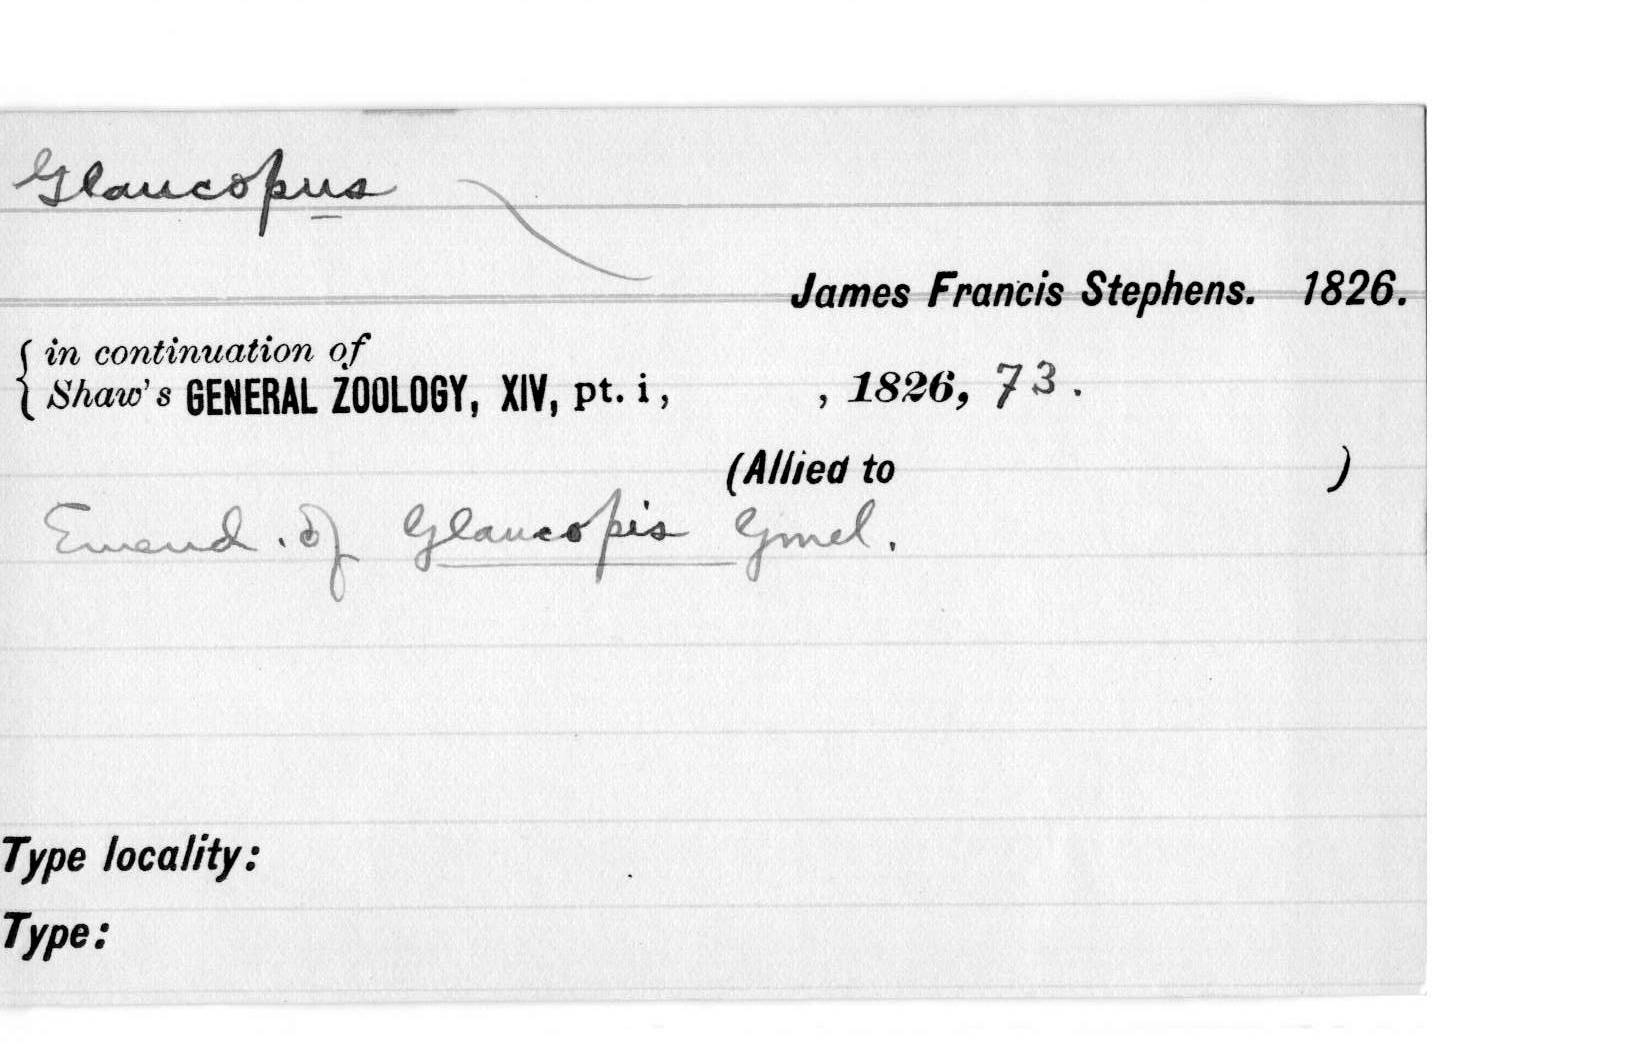 Glaucopus
James Francis Stephens. 1826.
in continuation of
Shaw's GENERAL ZOOLOGY, XIV, pt. i, , 1826, 73.
(Allied to )
Emend. of Glaucopis Gmel.
Type locality:
Type: